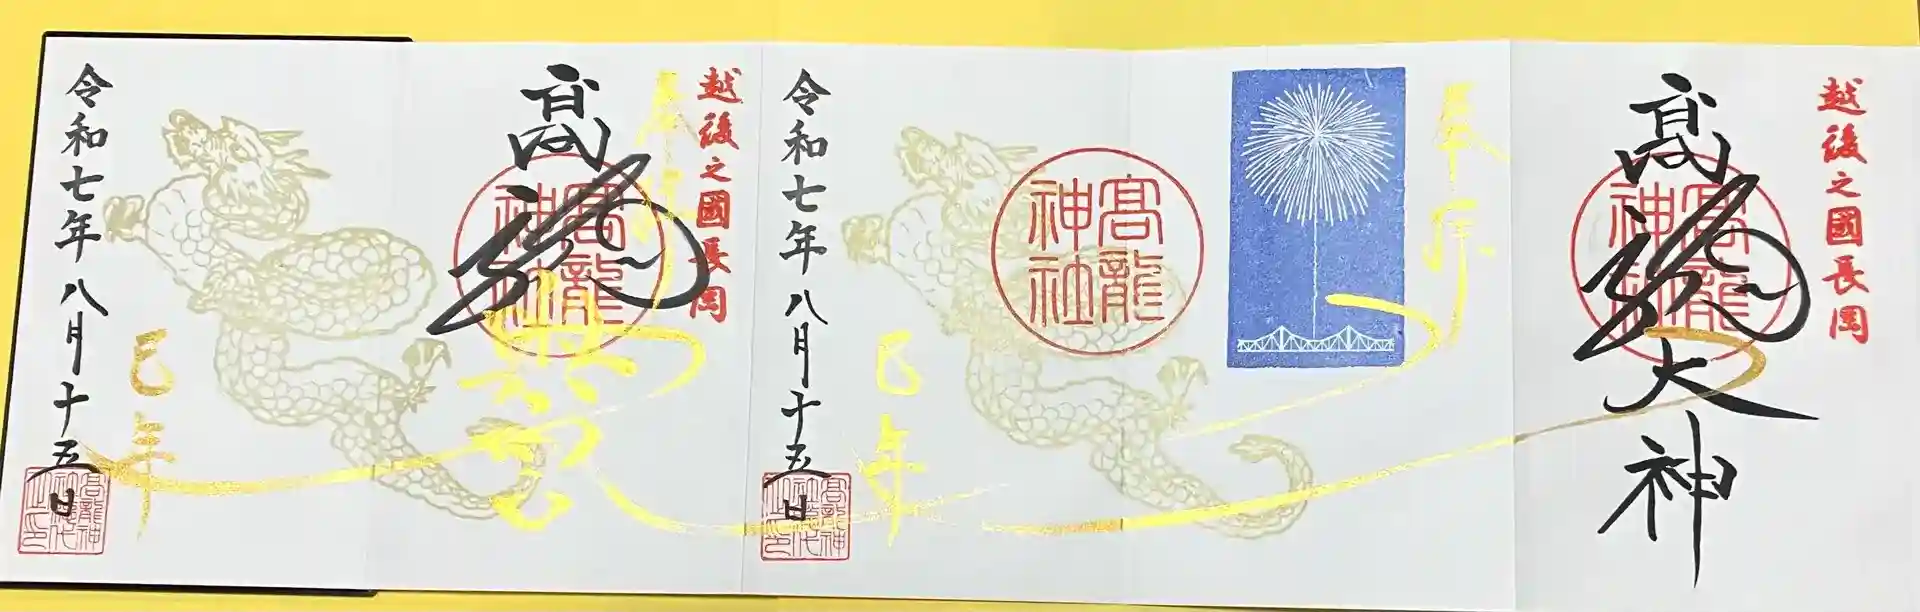 越後之國長岡
髙龍大神
髙龍神社
奉拝
髙龍神社
令和七年八月十五日
巳年
越後之國長岡
奉拝
髙龍
髙龍神社
令和七年八月十五日
巳年